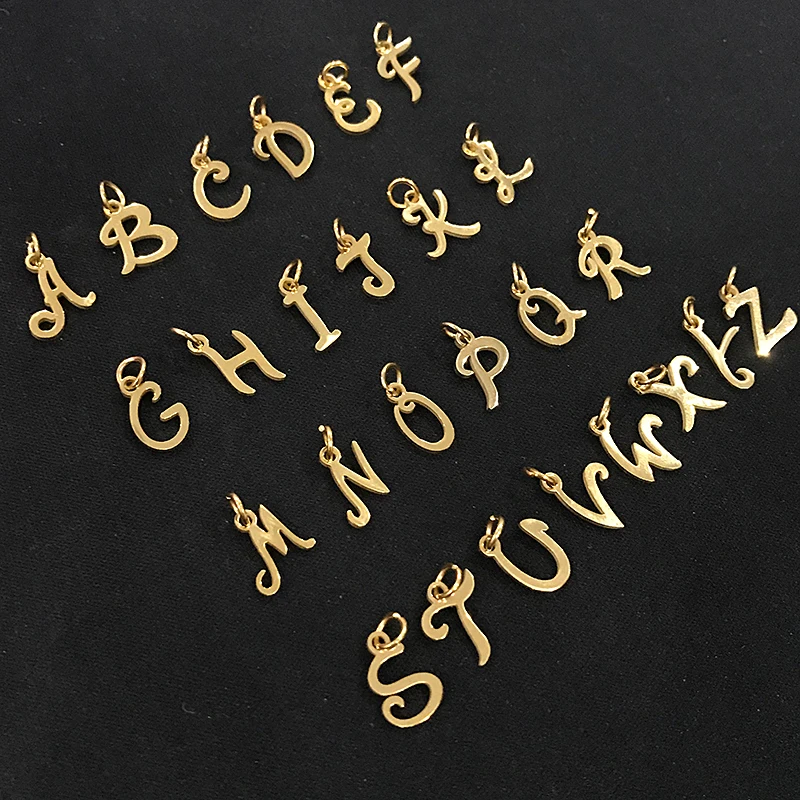 A B C D E F
G H I J K L
M N O P Q R
S T U V W X Y Z